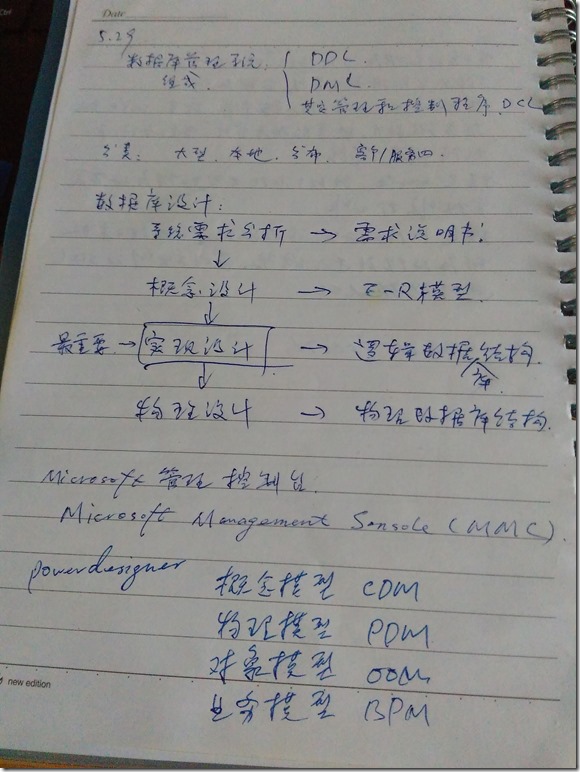 Date
5.29
数据库管理系统 DDL.
组成. DML.
其它管理和控制程序.DCL
分类: 大型. 本地. 分布. 客户/服务四.
数据库设计:
系统需求分析 → 需求说明书;
↓
概念设计 → E-R模型.
↓
最重要. → 实现设计 → 逻辑数据库结构.
↓
物理设计 → 物理数据库结构.
Microsoft 管理控制台.
Microsoft Management Sonsole (MMC).
powerdesigner 概念模型 CDM
物理模型 PDM
对象模型 OOM
业务模型 BPM
new edition